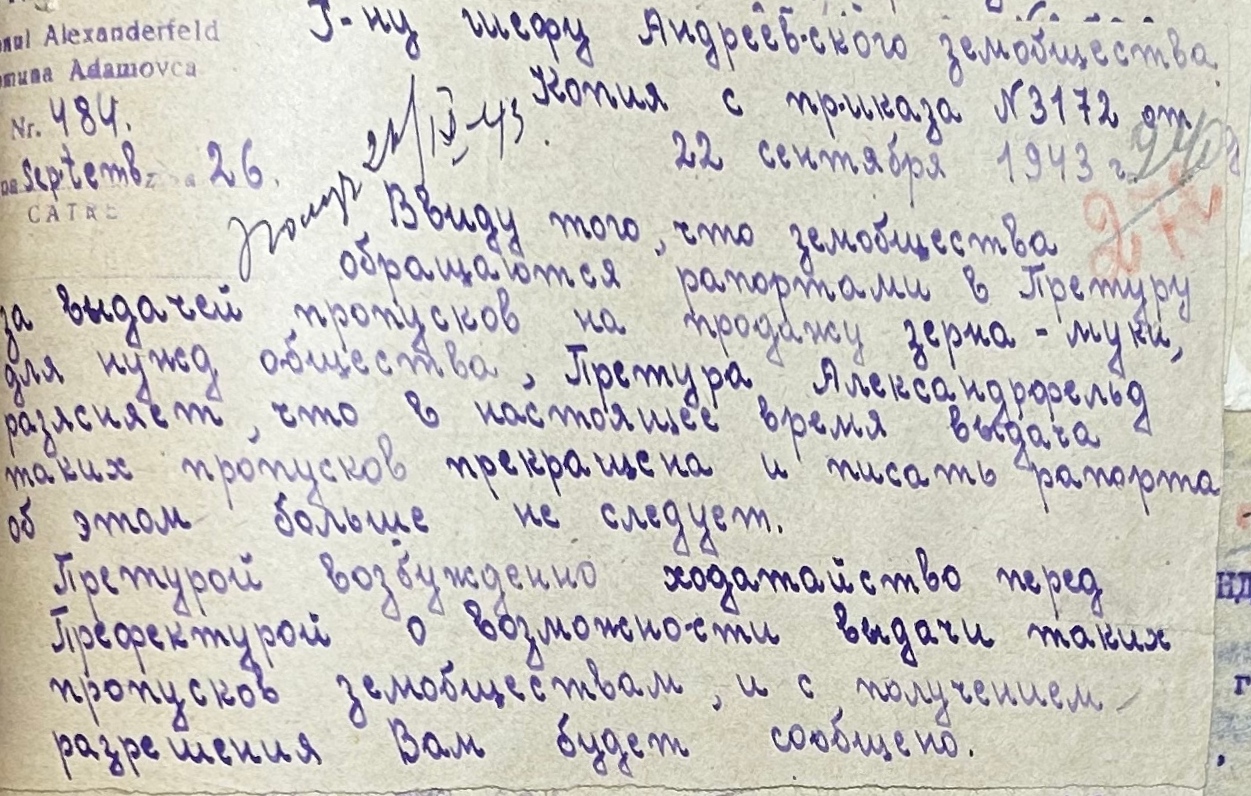 onul Alexanderfeld
omuna Adamovca
Nr. 484.
Septemb. 26.
CATRE
Г-ну шефу Андреевского земобщества.
Копия с приказа №3172 от
22 сентября 1943 г.
Ввиду того, что земобщества
обращаются рапортами в Претуру
за выдачей пропусков на продажу зерна - муки,
для нужд общества, Претура Александрфельд
разясняет, что в настоящее время выдача
таких пропусков прекращена и писать рапорта
об этом больше не следует.
Претурой возбужденно ходатайство перед
Префектурой о возможности выдачи таких
пропусков земобществам, и с получением
разрешения Вам будет сообщено.